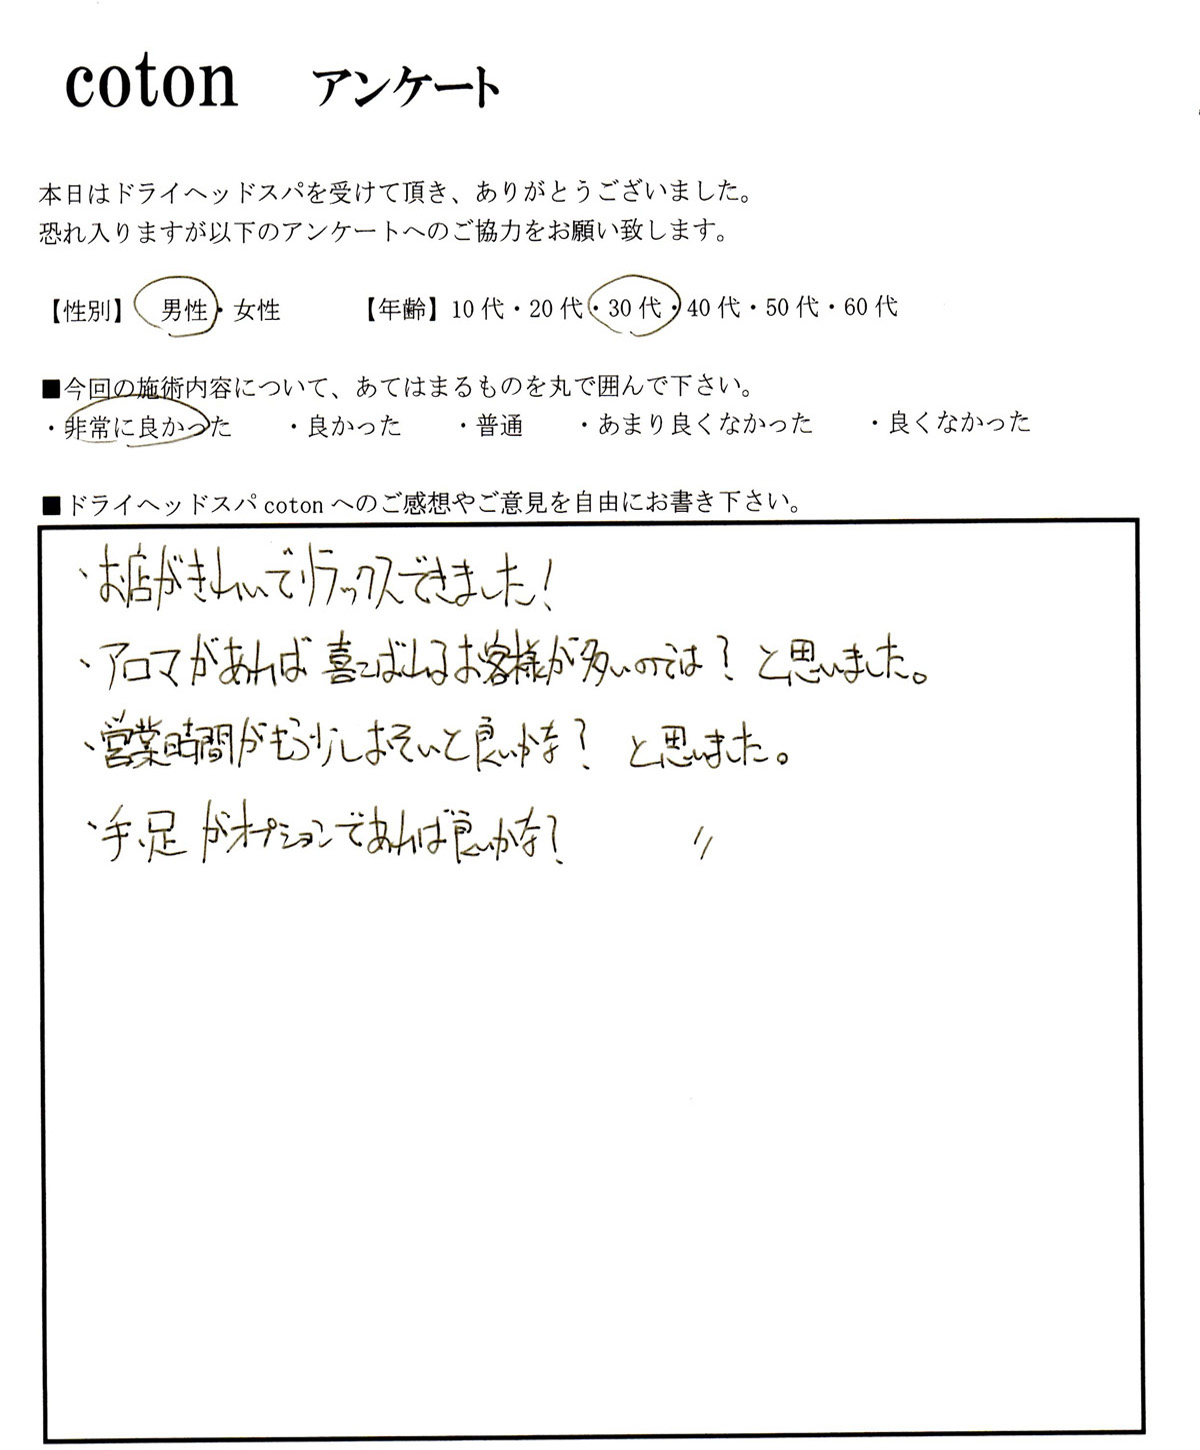 coton アンケート
本日はドライヘッドスパを受けて頂き、ありがとうございました。
恐れ入りますが以下のアンケートへのご協力をお願い致します。
【性別】 男性・女性 【年齢】10代・20代・30代・40代・50代・60代
■今回の施術内容について、あてはまるものを丸で囲んで下さい。
・非常に良かった ・良かった ・普通 ・あまり良くなかった ・良くなかった
■ドライヘッドスパcotonへのご感想やご意見を自由にお書き下さい。
・お店がきれいでリラックスできました!
・アロマがあれば喜こばれるお客様が多いのでは?と思いました。
・営業時間がもう少しおそいと良いかな?と思いました。
・手、足がオプションであれば良いかな? 〃